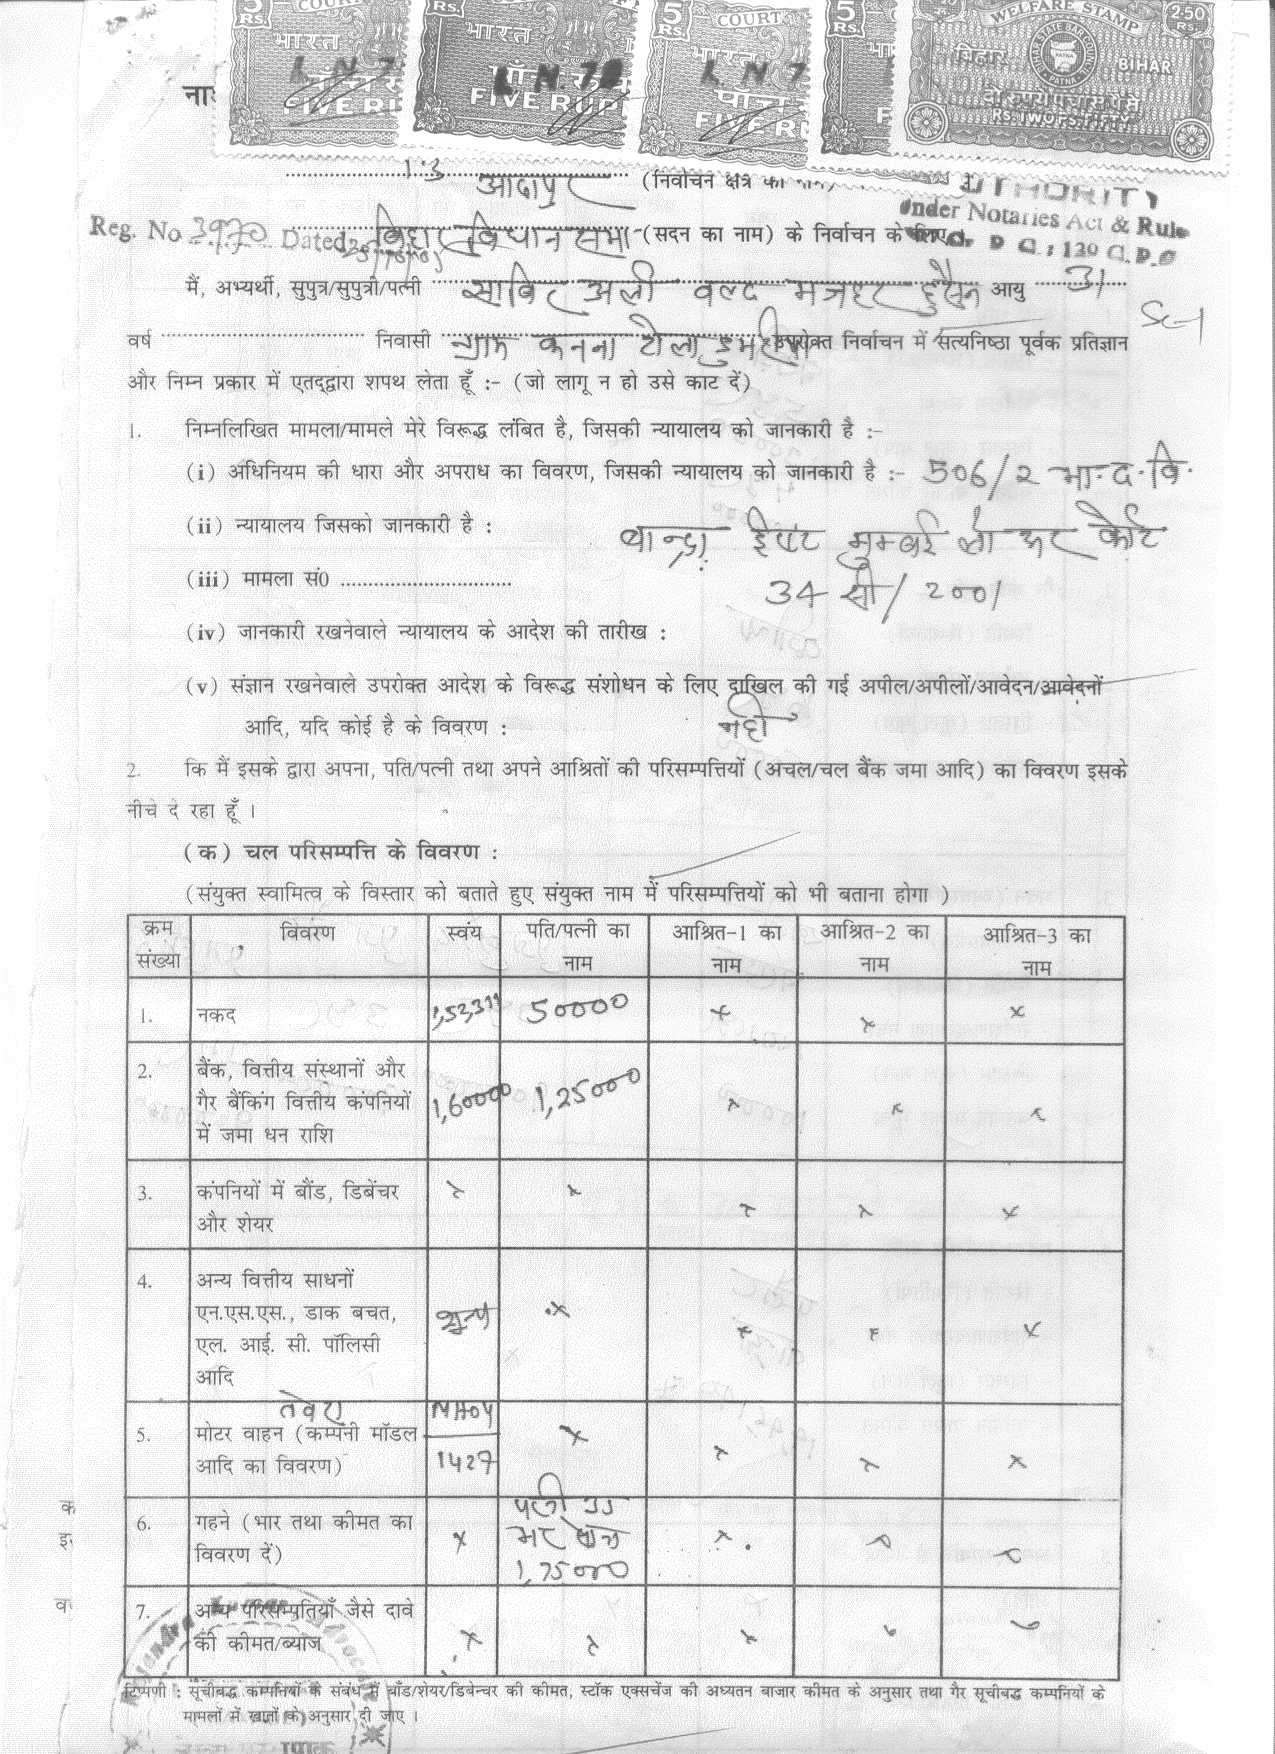 5 RS. COURT भारत L. N. 7 FIVE RUP
RS. भारत पाँच L. N. 72 FIVE RUP
5 RS. COURT भारत L N 7 पाँच FIVE R
5 RS.
WELFARE STAMP 2.50 बिहार BIHAR STATE BAR COUNCIL PATNA दो रुपये पचास पैसे RS. TWO PS. FIFTY
13 आदापुर (निर्वाचन क्षेत्र का नाम)
AUTHORITY
Under Notaries Act & Rule
Reg. No 3970 Dated बिहार विधान सभा (सदन का नाम) के निर्वाचन के लिए
मैं, अभ्यर्थी, सुपुत्र/सुपुत्री/पत्नी साबिर अली वल्द मजहर हुसैन आयु 31
वर्ष निवासी ग्राम कनना टोला डुमरिया उपरोक्त निर्वाचन में सत्यनिष्ठा पूर्वक प्रतिज्ञान
और निम्न प्रकार में एतद्द्वारा शपथ लेता हूँ :- (जो लागू न हो उसे काट दें)
1. निम्नलिखित मामला/मामले मेरे विरूद्ध लंबित है, जिसकी न्यायालय को जानकारी है :-
(i) अधिनियम की धारा और अपराध का विवरण, जिसकी न्यायालय को जानकारी है :- 506/2 भा.द.वि.
(ii) न्यायालय जिसको जानकारी है : बान्द्रा ईस्ट मुम्बई लोकर कोर्ट
(iii) मामला सं0 34 सी/2001
(iv) जानकारी रखनेवाले न्यायालय के आदेश की तारीख :
(v) संज्ञान रखनेवाले उपरोक्त आदेश के विरूद्ध संशोधन के लिए दाखिल की गई अपील/अपीलों/आवेदन/आवेदनों
आदि, यदि कोई है के विवरण : नहीं
2. कि मैं इसके द्वारा अपना, पति/पत्नी तथा अपने आश्रितों की परिसम्पत्तियों (अचल/चल बैंक जमा आदि) का विवरण इसके
नीचे दे रहा हूँ ।
(क) चल परिसम्पत्ति के विवरण :
(संयुक्त स्वामित्व के विस्तार को बताते हुए संयुक्त नाम में परिसम्पत्तियों को भी बताना होगा )
क्रम संख्या विवरण स्वंय पति/पत्नी का नाम आश्रित-1 का नाम आश्रित-2 का नाम आश्रित-3 का नाम
1. नकद 1,52,311 50000 x x x
2. बैंक, वित्तीय संस्थानों और
गैर बैंकिंग वित्तीय कंपनियों 1,60000 1,25000 x x x
में जमा धन राशि
3. कंपनियों में बौंड, डिबेंचर x x x x x
और शेयर
4. अन्य वित्तीय साधनों
एन.एस.एस., डाक बचत, शून्य x x x x
एल. आई. सी. पॉलिसी
आदि
तवेरा MH04
5. मोटर वाहन (कम्पनी मॉडल x x x x
आदि का विवरण) 1427
6. गहने (भार तथा कीमत का x पत्नी भर सोना x
विवरण दें) 1,75000
7. अन्य परिसम्पतियाँ जैसे दावे
की कीमत/ब्याज x x x
टिप्पणी : सूचीबद्ध कम्पनियों के संबंध में बाँड/शेयर/डिबेन्चर की कीमत, स्टॉक एक्सचेंज की अध्यतन बाजार कीमत के अनुसार तथा गैर सूचीबद्ध कम्पनियों के
मामलों में खातों के अनुसार दी जाए ।